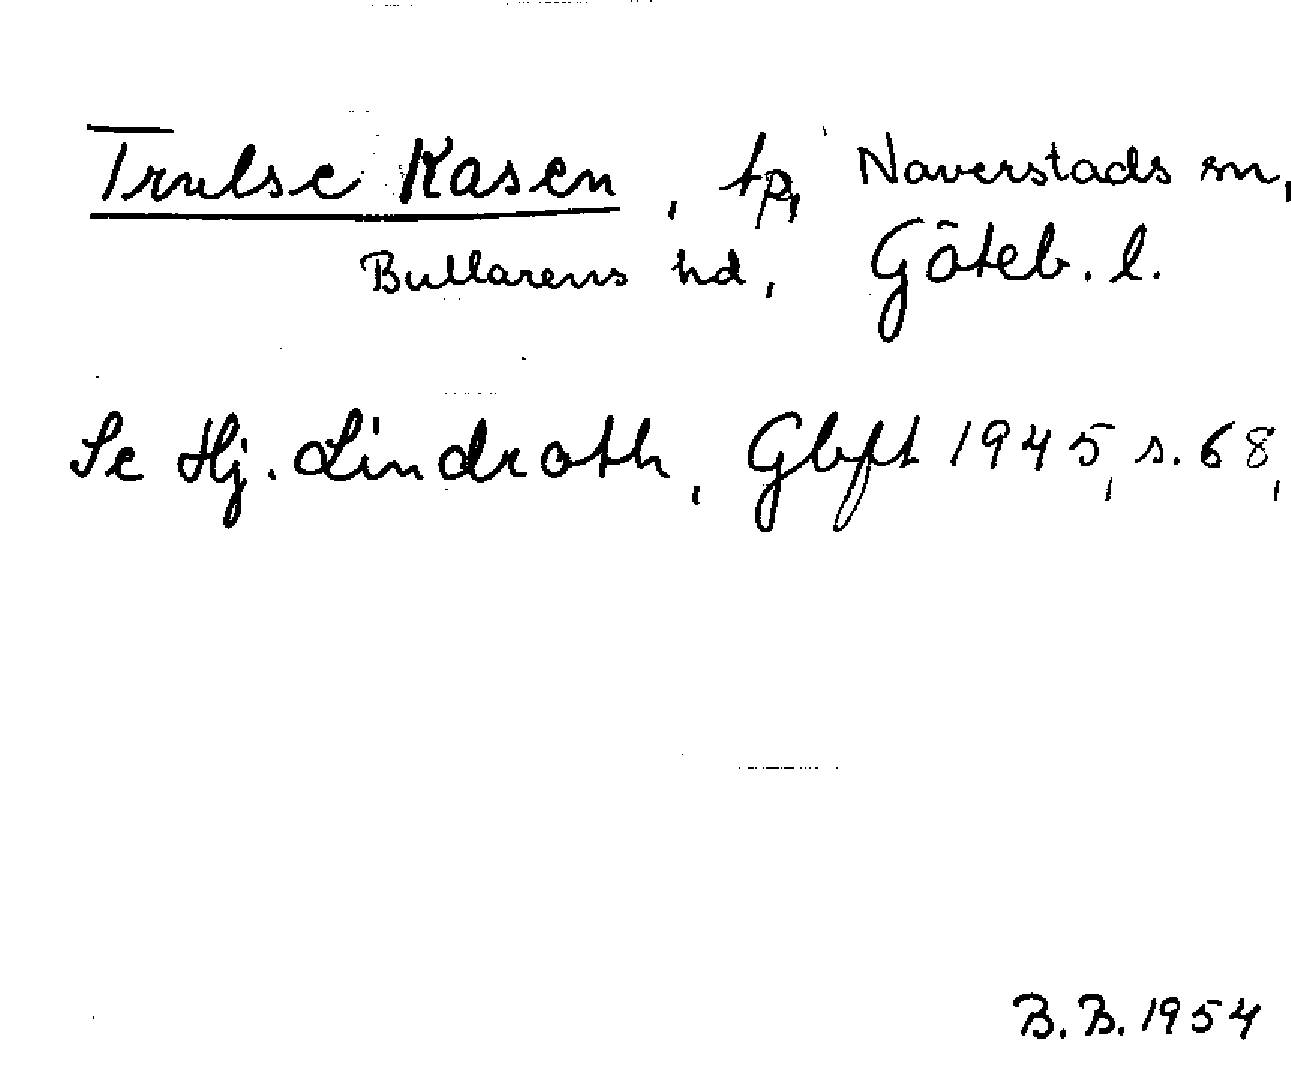 Trulse Kasen, tp, Naverstads sn,
Bullarens hd, Göteb. l.
Se Hj. Lindroth, Gbft 1945, s. 68,
B. B. 1954